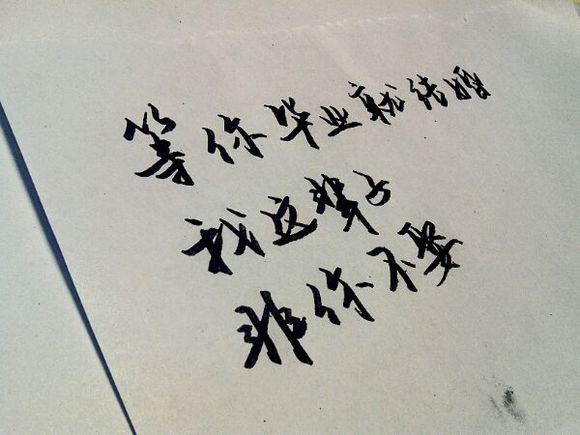 等你毕业就结婚
我这辈子
非你不娶